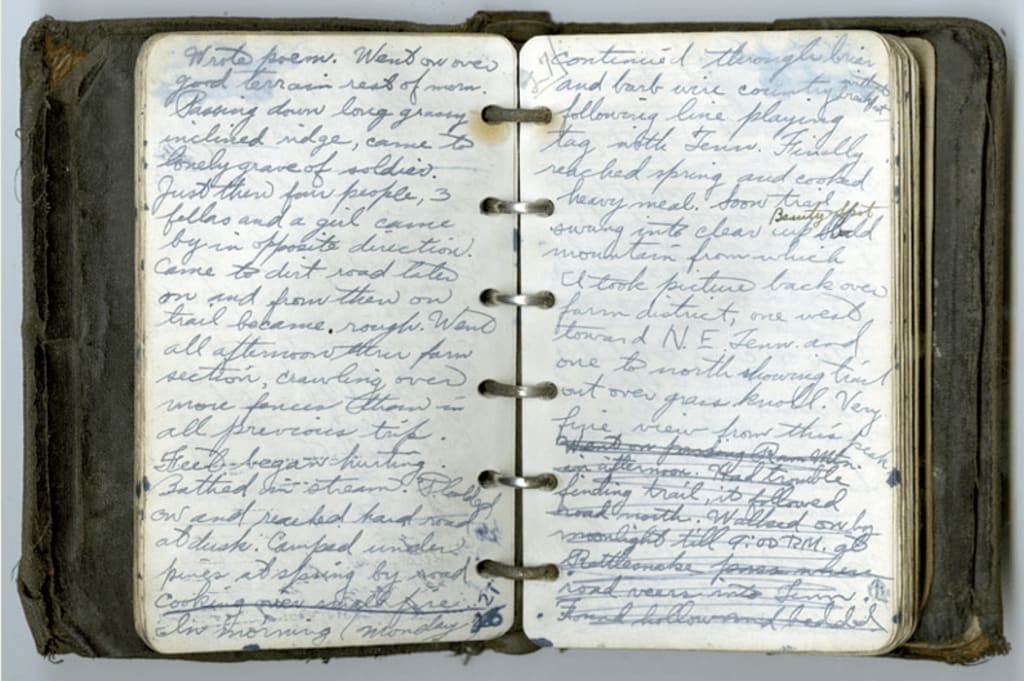 Wrote poem. Went on over
good terrain rest of morn.
Passing down long grassy
inclined ridge, came to
lonely grave of soldier.
Just then four people, 3
fellas and a girl came
by in opposite direction.
Came to dirt road later
on and from then on
trail became rough. Went
all afternoon thru farm
section, crawling over
more fences than in
all previous trip.
Feet began hurting.
Bathed in stream. Plodded
on and reached hard road
at dusk. Camped under
pines at spring by road
cooking over small fire.
In morning (monday
continued through brier
and barb wire country
following line playing
tag with Tenn. Finally
reached spring and cooked
heavy meal. Soon trail
Beauty Spot
swung into clear up bald
mountain from which
I took picture back over
farm district, one west
toward N.E. Tenn. and
one to north showing trail
out over grass knoll. Very
fine view from this peak
Went on passing Mtn.
in afternoon. Had trouble
finding trail, it followed
road north. Walked on by
moonlight till 9:00 P.M. at
Rattlesnake where
road veers into Tenn.
Found hollow and bedded